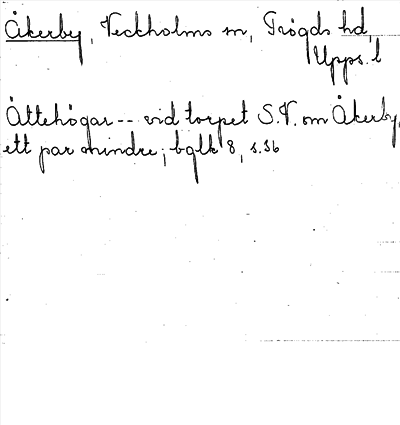 Åkerby, Veckholms sn, Trögds hd,
Upps. l
Ättehögar -- vid torpet S.V. om Åkerby,
ett par mindre; bglk 8, s.36